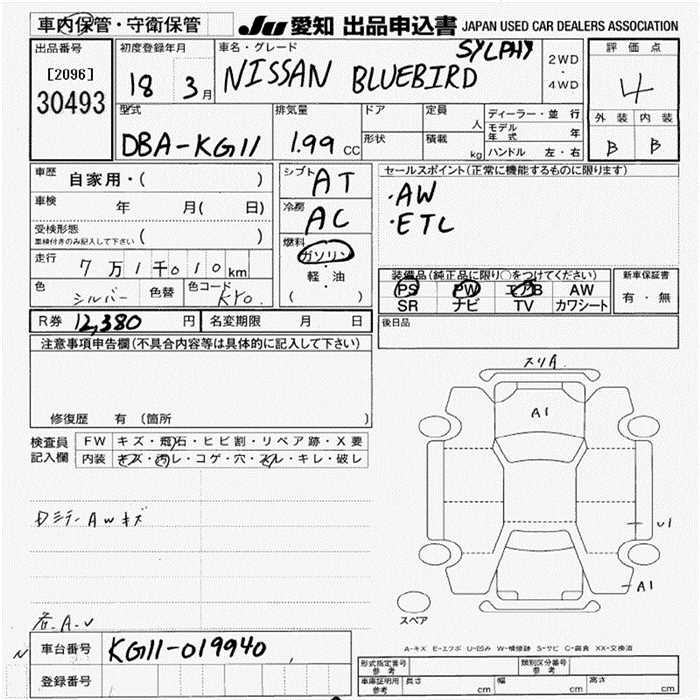 車内保管・守衛保管
JU 愛知 出品申込書 JAPAN USED CAR DEALERS ASSOCIATION
出品番号
[2096]
30493
初度登録年月
18 3月
車名・グレード
NISSAN BLUEBIRD SYLPHY
2WD
・
4WD
評価点
4
外装 内装
B B
型式
DBA-KG11
排気量
1.99 CC
ドア
形状
定員
人
積載
kg
ディーラー・並行
モデル年式 年
ハンドル 左・右
車歴
自家用・( )
車検
年 月( 日)
受検形態
車検付きのみ記入して下さい ( )
走行
7万1千010km
色
シルバー
色替
色コード
KY0.
シフト
AT
冷房
AC
燃料
ガソリン
・
軽・油
( )
セールスポイント(正常に機能するものに限ります)
・AW
・ETC
装備品(純正品に限り○をつけてください)
PS PW エアB AW
SR ナビ TV カワシート
新車保証書
有・無
R券 12,380 円
名変期限 月 日
後日品
注意事項申告欄(不具合内容等は具体的に記入して下さい)
修復歴 有 (箇所 )
検査員
記入欄
FW キズ・飛石・ヒビ割・リペア跡・X要
内装 キズ・汚レ・コゲ・穴・スレ・キレ・破レ
スリA
A1
U1
A1
スペア
AWキズ
各.A.U
A-キズ E-エクボ U-凹み W-補修跡 S-サビ C-腐食 XX-交換済
車台番号
KG11-019940
登録番号
形式指定番号
参考
類別区分番号
参考
車庫証明用
参考
長さ cm
幅 cm
高さ cm